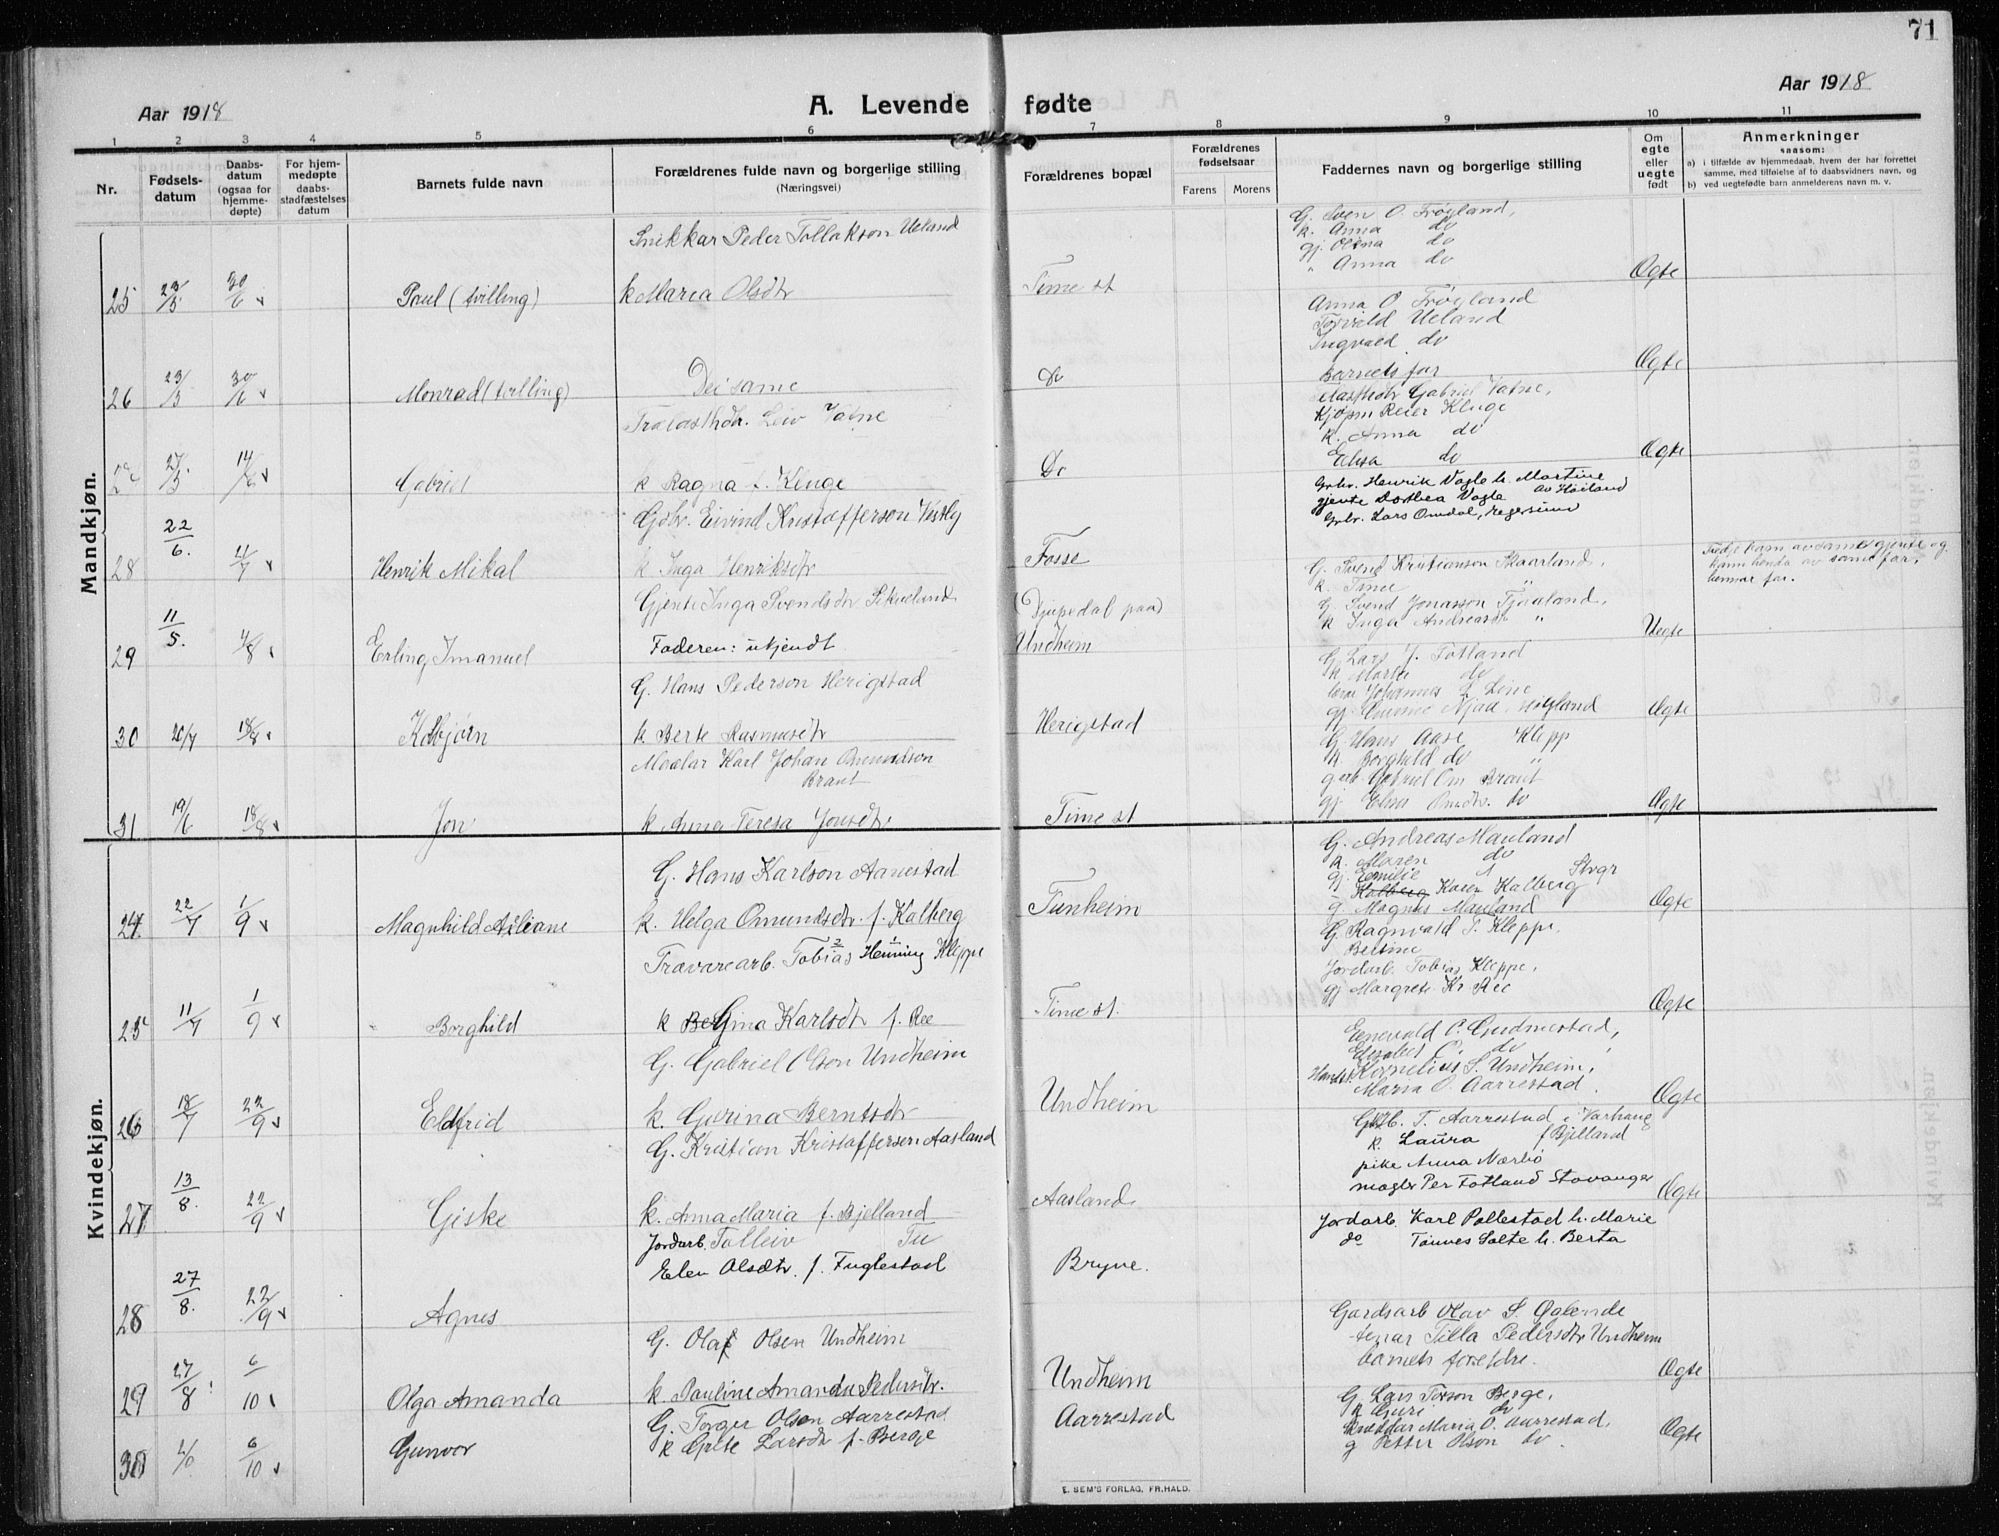 71
Aar 1918
A. Levende fødte
Aar 1918
1 2 3 4 5 6 7 8 9 10 11
Nr.
Fødsels-
datum
Daabs-
datum
(ogsaa for
hjemme-
døpte)
For hjem-
medøpte
daabs-
stadfæstelses
datum
Barnets fulde navn
Forældrenes fulde navn og borgerlige stilling
(Næringsvei)
Forældrenes bopæl
Forældrenes
fødselsaar
Farens Morens
Faddernes navn og borgerlige stilling
Om
egte
eller
uegte
født
Anmerkninger
saasom:
a) i tilfælde av hjemmedaab, hvem der har forrettet
samme, med tilføielse af to daabsvidners navn, og
b) ved uegtefødte barn anmelderens navn m. v.
Mandkjøn.
Snikkar Peder Tollakson Ueland
G. Sven O. Frøyland,
k. Anna do
gj. Olena do
" Anna do
25 23/5 30/6 Paul (tvilling) k Maria Olsdtr Time st Ægte
Anna O. Frøyland
Torvald Ueland
Ingvald do
Barnets far
26 23/5 30/6 Monrad (tvilling) Dei same Do Ægte
Trælasthdr. Leiv Vatne
Gabriel Vatne,
Kjøpm Reier Kluge
k. Anna do
Elisa do
27/5 14/6 Gabriel k Ragna f. Kluge Do Ægte
Gbr. Eivind Kristofferson Vestly
Grbr. Henrik Vagle h. Martine
gjente Dorthea Vagle av Høiland
Grbr. Lars Omdal, Egersund
28 22/6. 21/7 Henrik Mikal k Inga Henriksdtr Fosse
Gjente Inga Svendsdtr Skueland
(Djupedal paa)
G. Svend Kristianson Skaarland,
k. Tine "
G. Svend Jonasson Tjaaland,
k Inga Andreasdt "
Tredje barn av same gjente og
hennar far.
29 11/5. 4/8 Erling Imanuel Faderen: ukjendt Undheim Uegte
G. Hans Pederson Herigstad
G. Lars J. Totland
k Marta do
Johannes Line
30 20/7 18/8 Kolbjørn k. Berte Rasmusdtr Herigstad Ægte
Maalar Karl Johan Omundson
Braut
G. Hans Aase Klepp
k. Borghild do "
Gabriel Om Braut
gj. Elen Omdtr. do
31 19/6 18/8 Jon k. Anna Teresa Jonsdtr Time st Ægte
Kvindekjøn.
G. Hans Karlson Aanestad
G. Andreas Mauland
k. Maren do
gj. Emilie " Stvgr
Kalberg Karen Kalberg
g. Magnus Mauland
24 22/7 1/9 Magnhild Asliane k. Helga Omundsdtr. f. Kalberg Tunheim Ægte
Travarearb. Tobias Henning Kleppe
G. Ragnvald T. Kleppe,
Bertine
Jordarb. Tobias Kleppe,
gj Margrete Kr Ree
25 11/7 1/9 Borghild k Gina Karlsdtr f. Ree Time st. Ægte
G. Gabriel Olson Undheim
Enevald O. Gudmestad,
Elisabet O. do
Kornelius S. Undheim,
Maria O. Aarrestad
26 18/7 22/9 Eldfrid k. Gurina Berntsdtr Undheim Ægte
G. Kristian Kristoffersen Aasland
Gbr. T. Aarrestad i Varhaug
k. Laura f Bjelland
pike Anna Nærbø
magler Per Totland Stavanger
27 13/8. 22/9 Giske k. Anna Maria f. Bjelland Aasland Ægte
Jordarb. Tolleiv Tu
Elen Olsdtr. f. Fuglestad Bryne.
Jordarb. Karl Pollestad h. Marie
do Tønnes Salte h. Berta
28 27/8. 22/9 Agnes
G. Olaf Olsen Undheim
Gardsarb Olav S. Oglende
tenar Tilla Pedersdtr Undheim
barnets foreldre.
29 27/8 6/10 Olga Amanda k Pauline Amanda Pedersdtr. Undheim Ægte
G. Torger Olsen Aarrestad
Aarrestad
G. Lars Torson Berge,
k Guri do
Maria O. Aarrestad,
g Petter Olson do.
30 6/10 Gunvor k Grete Larsdtr f. Berge Ægte
E. SEM'S FORLAG, FR.HALD.